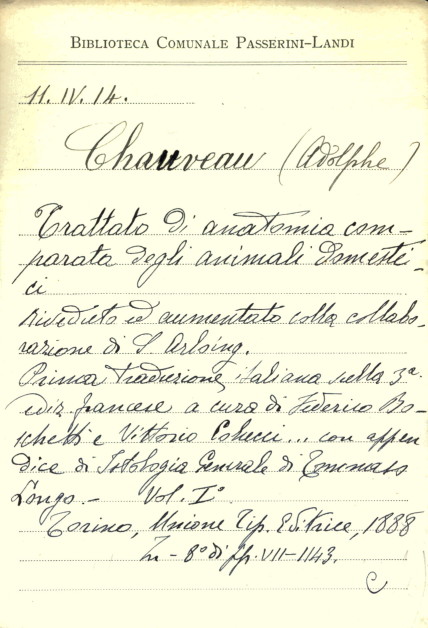 BIBLIOTECA COMUNALE PASSERINI-LANDI
11.IV.14.
Chauveau (Adolphe)
Trattato di anatomia com-
parata degli animali domesti-
ci
riveduto ed aumentato colla collabo-
razione di S. Arloing.
Prima traduzione italiana sulla 3a.
ediz. francese a cura di Federico Bo-
schetti e Vittorio ... con appen
dice di Istologia Generale di Tommaso
Longo.- Vol. I°
Torino, Unione Tip. Editrice, 1888
In - 8° di pp. VII-1143.
C